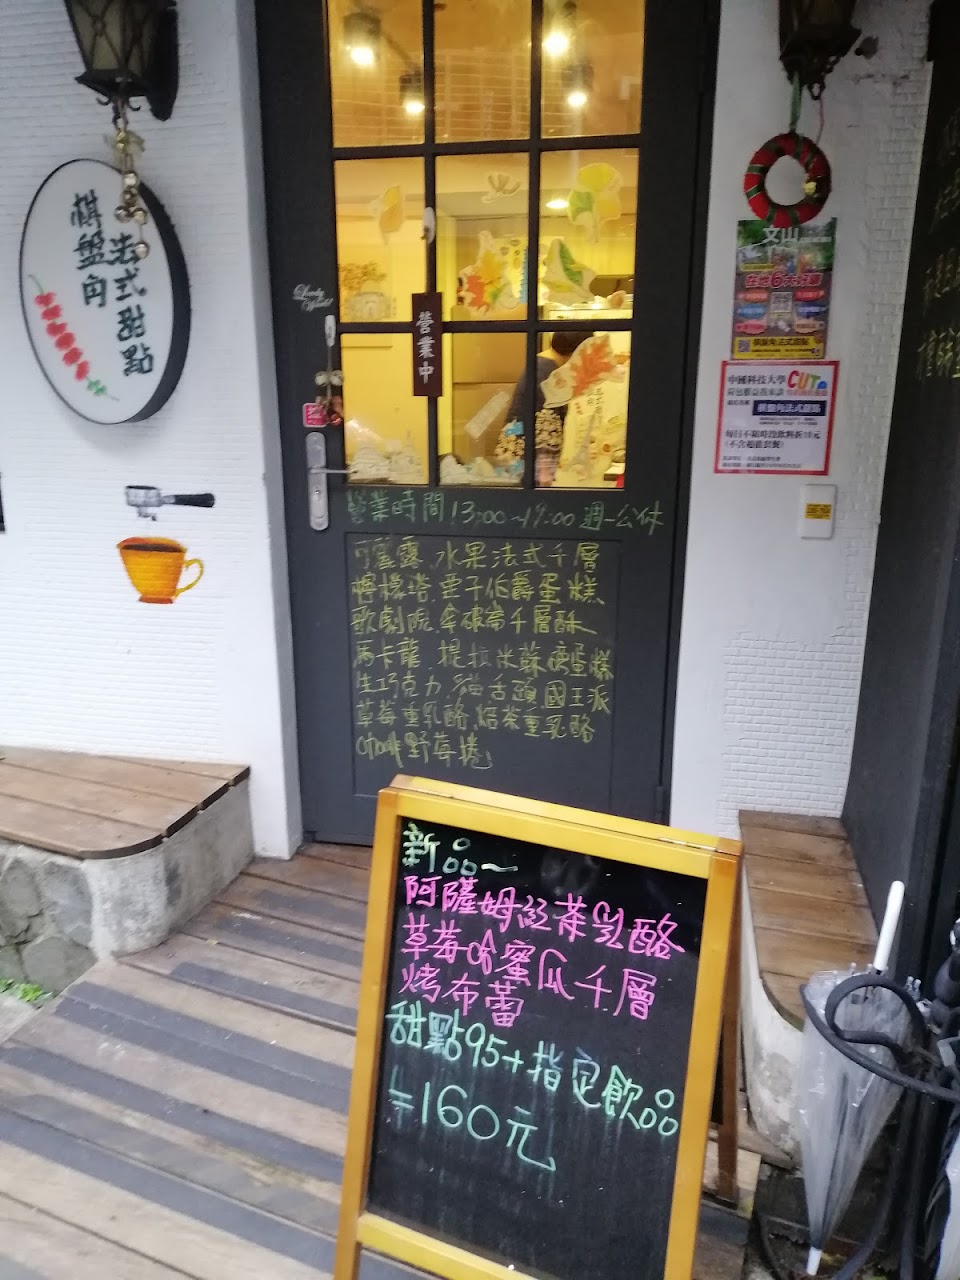 棋盤角
法式甜點
營業中
營業時間13:00~19:00 週一公休
可麗露、水果法式千層
檸檬塔、栗子伯爵蛋糕
歌劇院、拿破崙千層酥
馬卡龍、提拉米蘇磅蛋糕
生巧克力、貓舌頭、國王派
草莓重乳酪、焙茶重乳酪
咖啡野莓捲
文山
中國科技大學 CUTe
棋盤角法式甜點
每日不限時段飲料折10元
(不含超值套餐)
新品~
阿薩姆紅茶乳酪
草莓哈蜜瓜千層
烤布蕾
甜點95+指定飲品
=160元